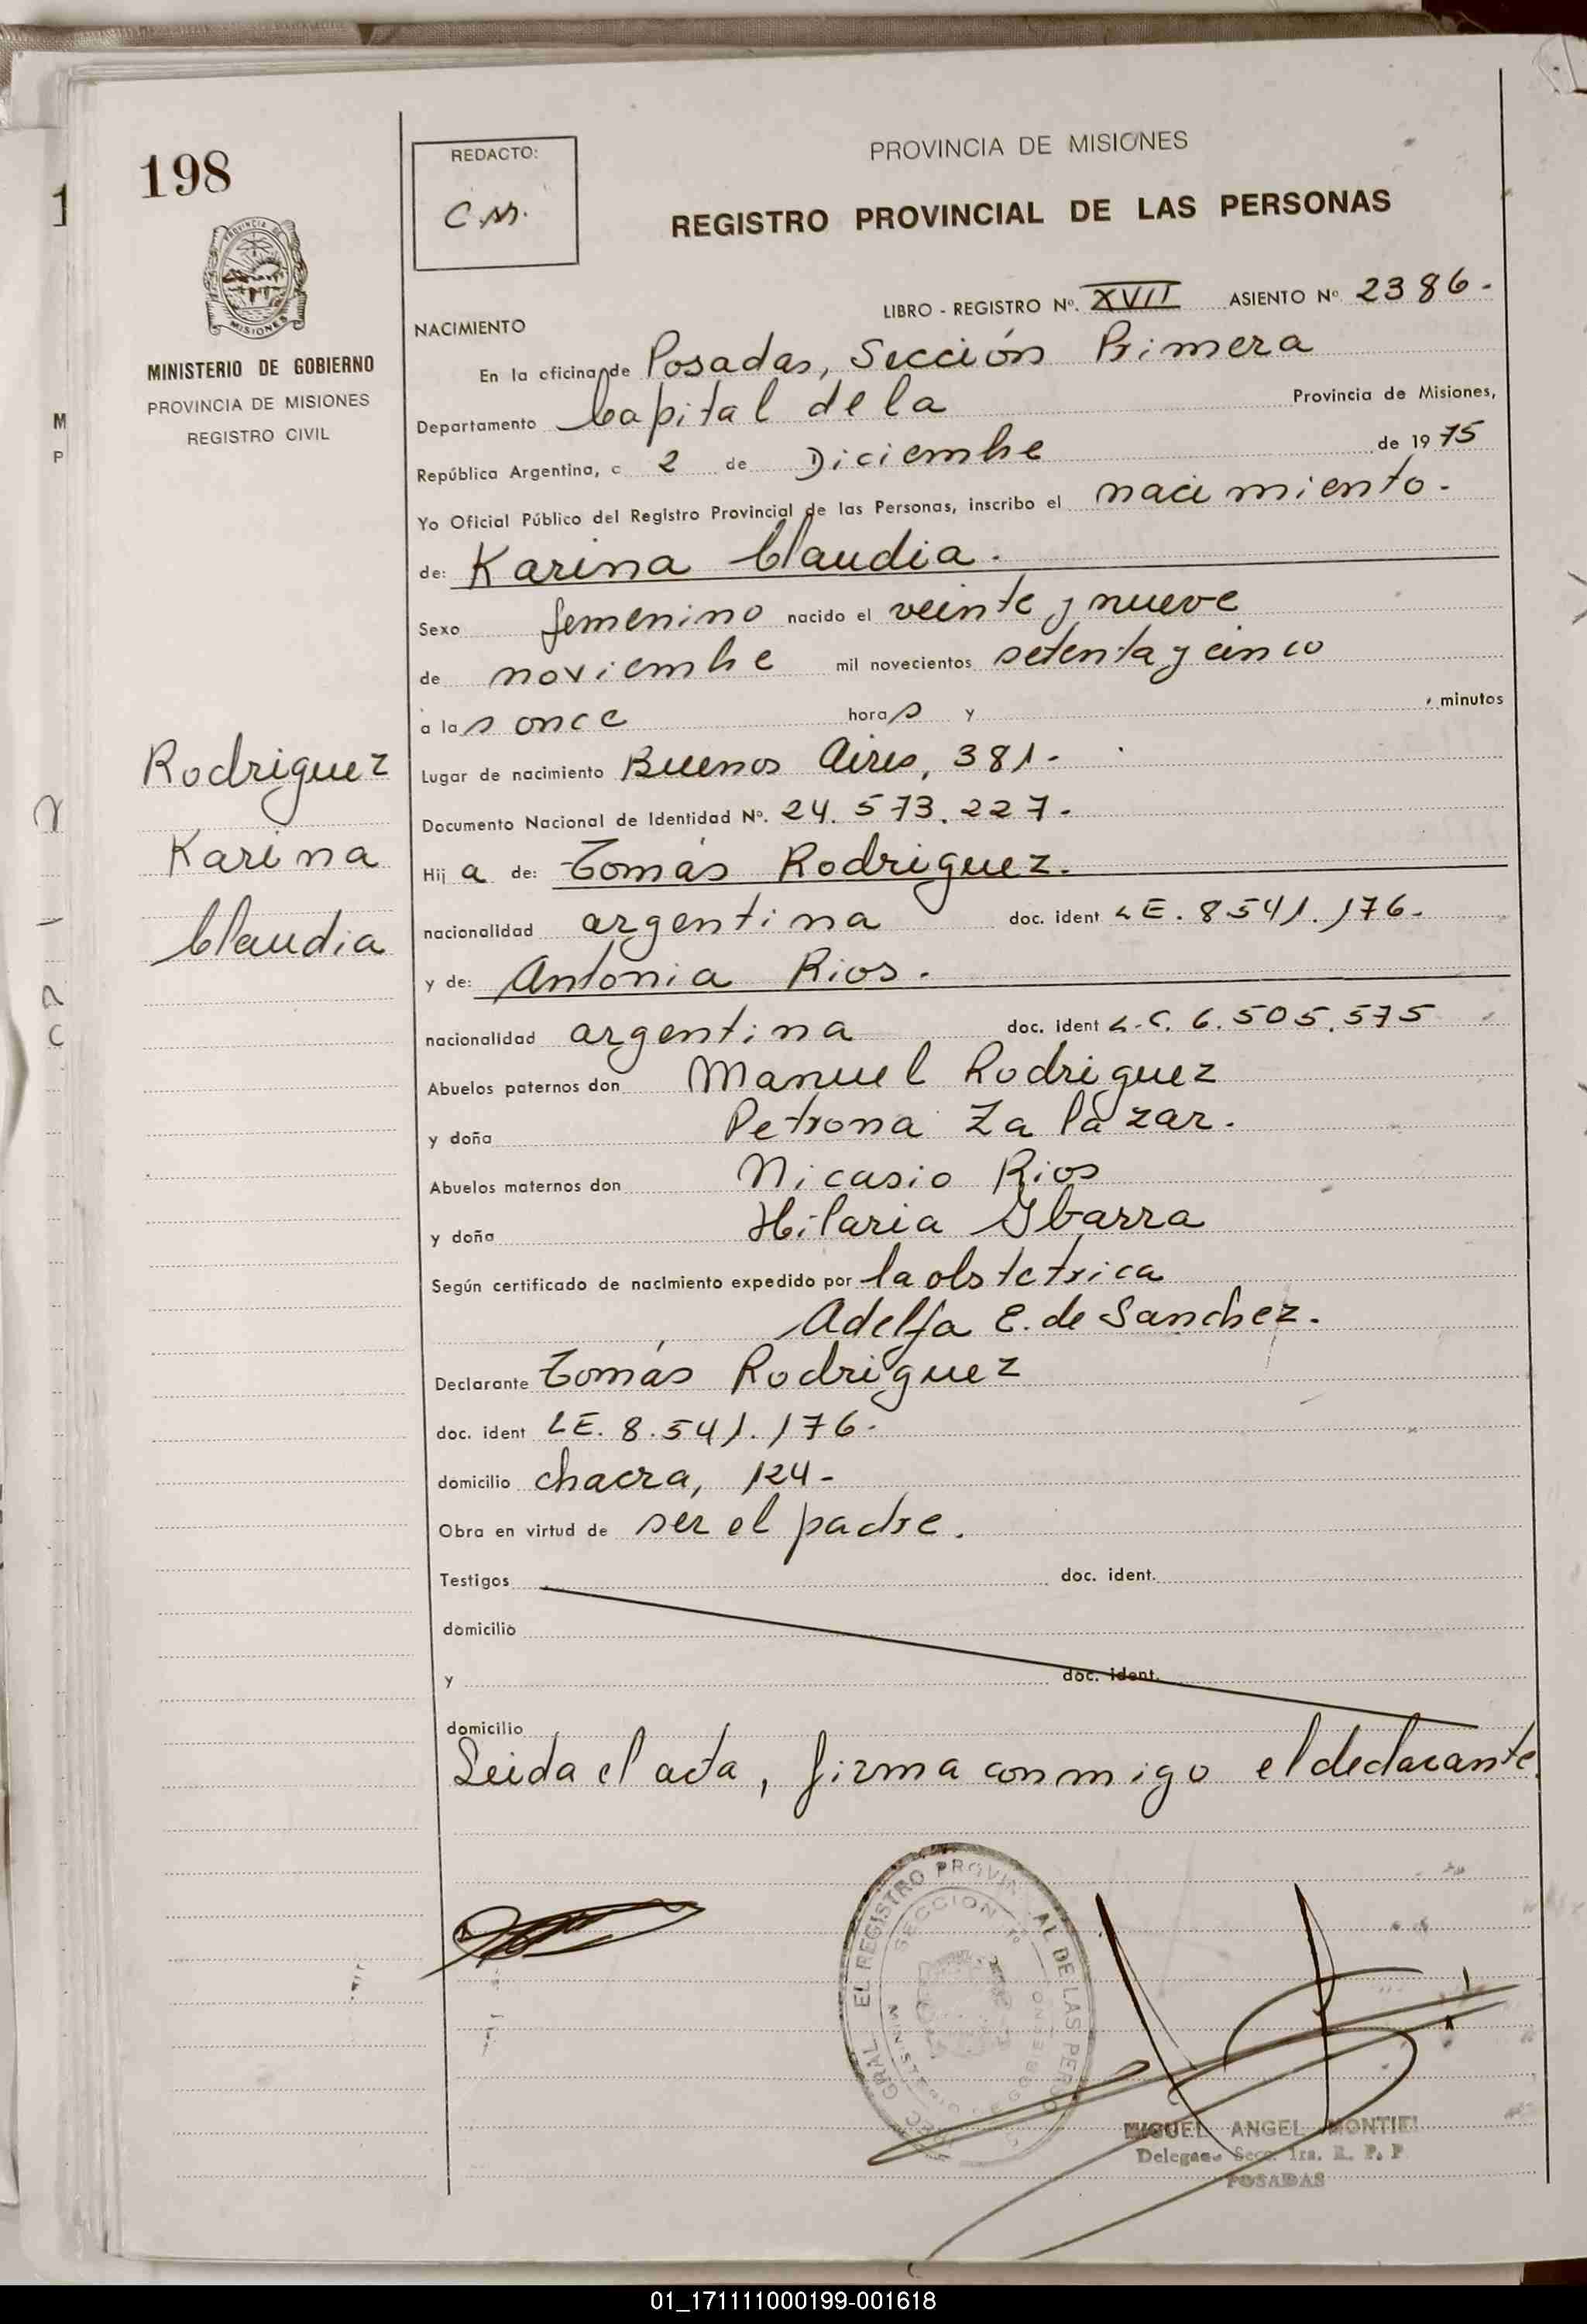 198
PROVINCIA DE
MISIONES
MINISTERIO DE GOBIERNO
PROVINCIA DE MISIONES
REGISTRO CIVIL
Rodriguez
Karina
Claudia
REDACTO:
C.M.
PROVINCIA DE MISIONES
REGISTRO PROVINCIAL DE LAS PERSONAS
LIBRO - REGISTRO Nº. XVII ASIENTO Nº 2386.-
NACIMIENTO
En la oficina de Posadas, Sección Primera
Departamento Capital de la Provincia de Misiones,
República Argentina, a 2 de Diciembre de 1975
Yo Oficial Público del Registro Provincial de las Personas, inscribo el nacimiento.
de: Karina Claudia.
Sexo femenino nacido el veinte y nueve
de noviembre mil novecientos setenta y cinco
a las once horas y minutos
Lugar de nacimiento Buenos Aires, 381.-
Documento Nacional de Identidad Nº. 24.573.227.-
Hija de: Tomás Rodriguez.
nacionalidad argentina doc. ident LE. 8541.176.-
y de: Antonia Rios.
nacionalidad argentina doc. ident L.C. 6.505.575
Abuelos paternos don Manuel Rodriguez
y doña Petrona Zalazar.
Abuelos maternos don Nicasio Rios
y doña Hilaria Ybarra
Según certificado de nacimiento expedido por la obstetrica
Adelfa E. de Sanchez.
Declarante Tomás Rodriguez
doc. ident LE. 8.541.176.-
domicilio chacra, 124-
Obra en virtud de ser el padre.
Testigos doc. ident.
domicilio
y doc. ident.
domicilio
Leida el acta, firma conmigo el declarante.
SECCION 1º
MIGUEL ANGEL MONTIEL
Delegado Secc. 1ra. R. P. P
POSADAS
01_171111000199-001618